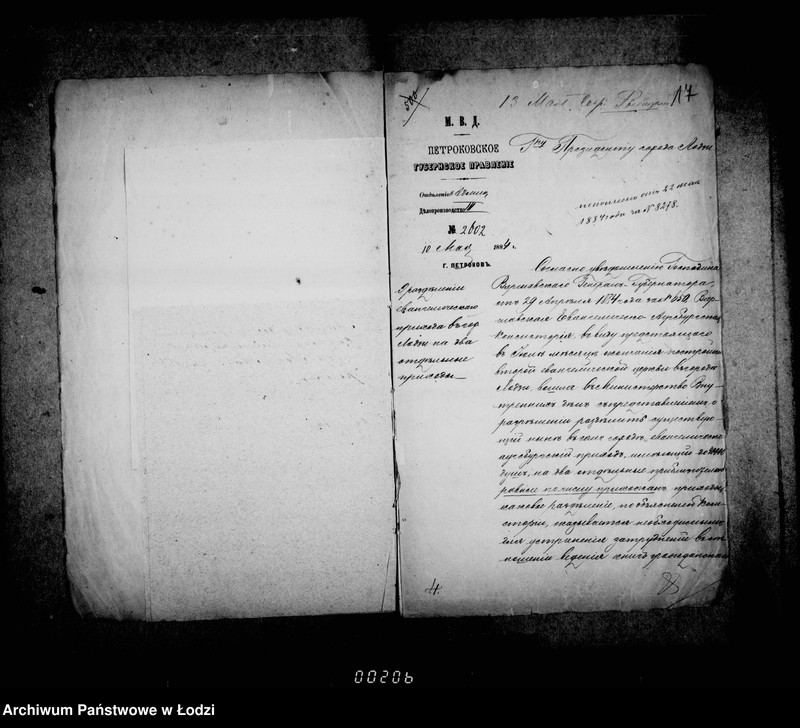 540
13 Мая
17
М. В. Д.
ПЕТРОКОВСКОЕ
ГУБЕРНСКОЕ ПРАВЛЕНІЕ
Отдѣленіе
Дѣлопроизводство III
№ 2602
10 Мая 1884 г.
г. ПЕТРОКОВЪ.
О раздѣленіи
евангелическаго
прихода въ гор.
Лодзи на два
отдѣльные
приходы
Гну Президенту города Лодзи
исполнено отъ 22 мая
1884 года за № 8278.
Согласно увѣдомленію Господина
Варшавскаго Генералъ-Губернатора,
отъ 29 Апрѣля 1884 года за №, Вар-
шавская Евангелическо-Аугсбургская
Консисторія, въ виду предстоящаго
въ Іюнѣ мѣсяцѣ окончанія постройки
второй евангелической церкви въ городѣ
Лодзи, вошла въ Министерство Вну-
треннихъ Дѣлъ съ представленіемъ о
разрѣшеніи раздѣлить существую-
щій нынѣ въ семъ городѣ, евангелическо-
аугсбургскій приходъ, имѣющій до
душъ, на два отдѣльные приблизительно
равные по числу прихожанъ прихода,
каковое раздѣленіе, по объясненію Кон-
систоріи, оказывается необходимымъ
для устраненія затрудненій въ от-
ношеніи веденія книгъ гражданскаго
00206
Archiwum Państwowe w Łodzi